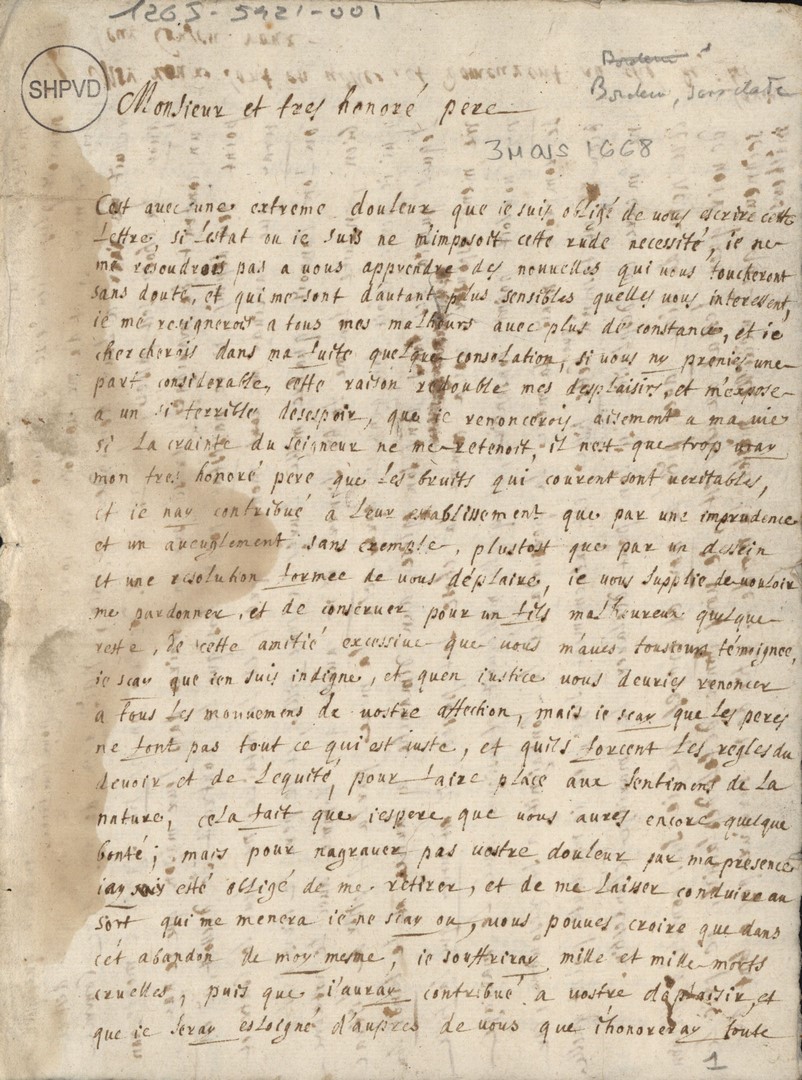 1265-5421-001
SHPVD
Bordeu
Bordeu,
Monsieur et tres honoré pere
3 mars 1668
Cest avec une extreme douleur que ie suis obligé de vous escrire cette
Lettre, si Lestat ou ie suis ne m'imposoit cette rude necessité, ie ne
me resoudrois pas a vous apprendre des nouvelles qui vous toucheront
sans doute, et qui me sont d'autant plus sensibles quelles vous interessent,
ie me resignerois a tous mes malheurs avec plus de constance, et ie
chercherois dans ma fuite quelque consolation, si vous ny prenies une
part considerable, cette raison redouble mes desplaisirs, et m'expose
a un si terrible desespoir, que ie renoncerois aisement a ma vie
si La crainte du seigneur ne me retenoit, il nest que trop vray
mon tres honoré pere que Les bruits qui courent sont veritables,
et ie nay contribué a Leur establissement que par une imprudence
et un aveuglement sans exemple, plustost que par un dessein
et une resolution formee de vous déplaire, ie vous supplie de vouloir
me pardonner, et de conserver pour un fils malheureux quelque
reste, de cette amitié excessive que vous m'aves tousiours témoignee,
ie scay que ien suis indigne, et quen iustice vous devries renoncer
a tous Les mouvemens de vostre affection, mais ie scay que Les peres
ne font pas tout ce qui est iuste, et quils forcent Les regles du
devoir et de Lequité, pour faire place aux sentimens de La
nature, cela fait que iespere que vous aures encore quelque
bonté; mais pour nagraver pas vostre douleur par ma presence
iay esté obligé de me retirer, et de me Laisser conduire au
sort qui me menera ie ne scay ou, vous pouves croire que dans
cét abandon de moy mesme, ie souffriray mille et mille morts
cruelles, puis que i'auray contribué a vostre déplaisir, et
que ie seray esloigné d'aupres de vous que i'honoreray toute
1